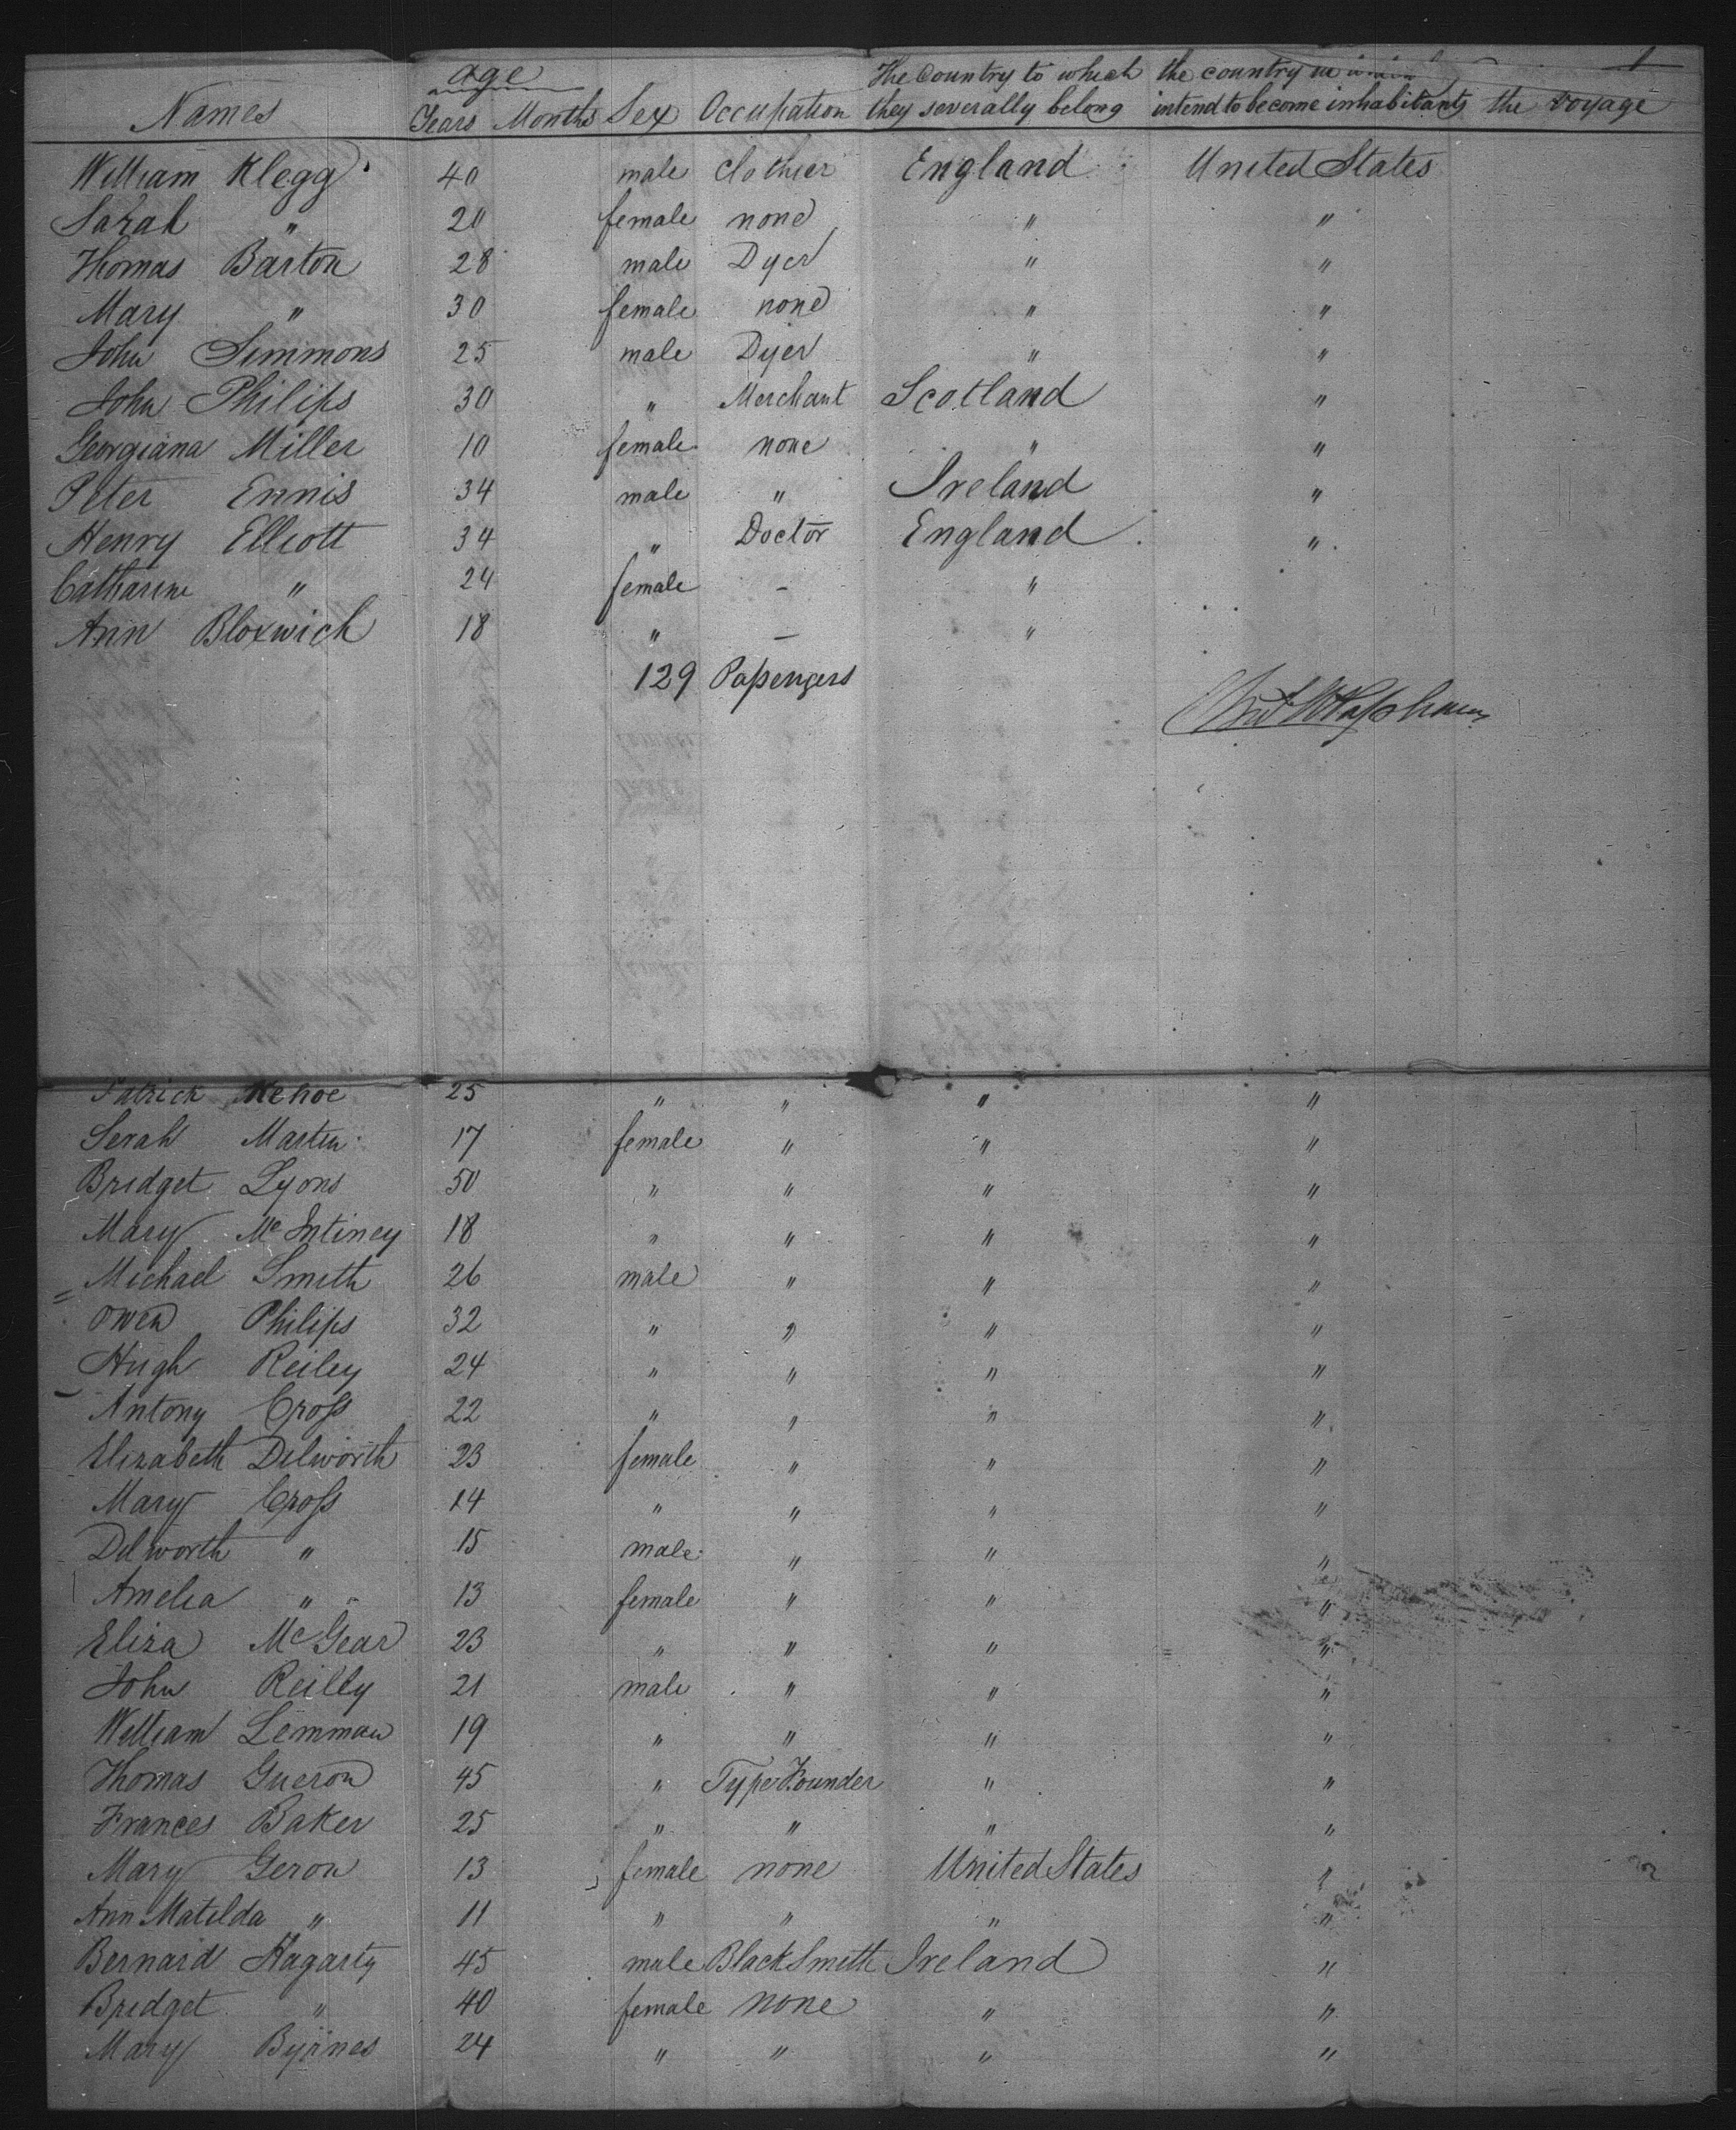 age The Country to which the country in 1
Names Years Months Sex Occupation they severally belong intend to become inhabitants the voyage
William Klegg 40 male Clothier England United States
Sarah " 20 female none " "
Thomas Barton 28 male Dyer " "
Mary " 30 female none " "
John Simmons 25 male Dyer " "
John Philips 30 " Merchant Scotland "
Georgiana Miller 10 female none " "
Peter Ennis 34 male " Ireland "
Henry Elliott 34 " Doctor England "
Catharine " 24 female - "
Ann Bloxwich 18 " - "
129 Paſsengers
Patrick Kehoe 25 " " " "
Serah Martin 17 female " " "
Bridget Lyons 50 " " " "
Mary Mc Intiney 18 " " " "
Michael Smith 26 male " " "
Owen Philips 32 " " " "
Hugh Reiley 24 " " " "
Antony Croſs 22 " " " "
Elizabeth Dilworth 23 female " " "
Mary Croſs 14 " " " "
Dilworth " 15 male " " "
Amelia " 13 female " " "
Eliza Mc Gear 23 " " " "
John Reilly 21 male " " "
William Lemman 19 " " " "
Thomas Gueron 45 " Type Founder " "
Frances Baker 25 " " " "
Mary Geron 13 female none United States "
Ann Matilda " 11 " " " "
Bernard Hagarty 45 male BlackSmith Ireland "
Bridget " 40 female none " "
Mary Byrnes 24 " " " "